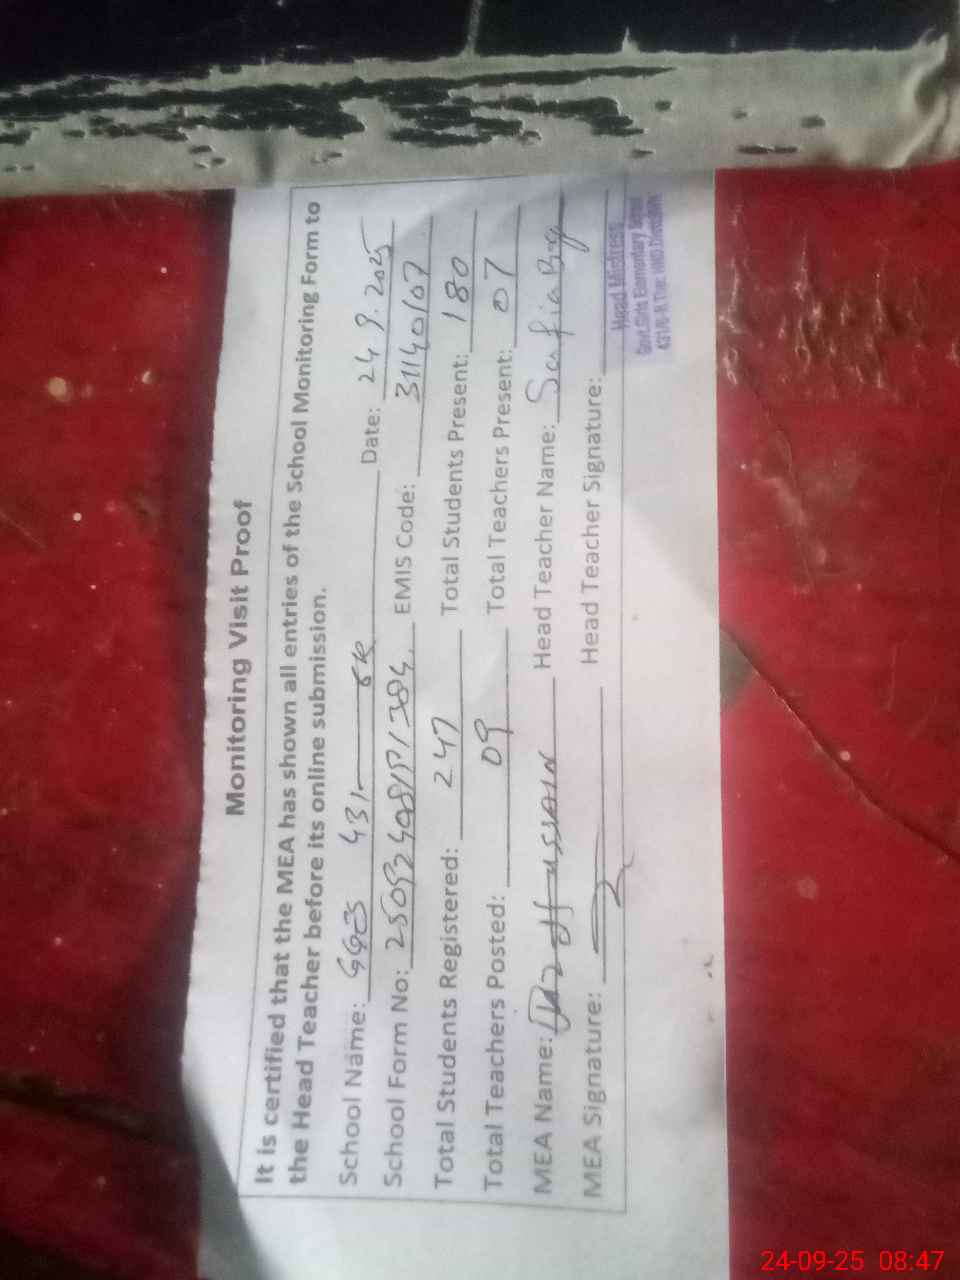 Monitoring Visit Proof
It is certified that the MEA has shown all entries of the School Monitoring Form to
the Head Teacher before its online submission.
School Name: GGES 431 6R Date: 24 9.2025
School Form No: EMIS Code: 31140107
Total Students Registered: 247 Total Students Present: 180
Total Teachers Posted: 09 Total Teachers Present: 07
MEA Name: Head Teacher Name: Safia
MEA Signature: Head Teacher Signature:
Head Mistress
Govt. Girls Elementary School
24-09-25 08:47